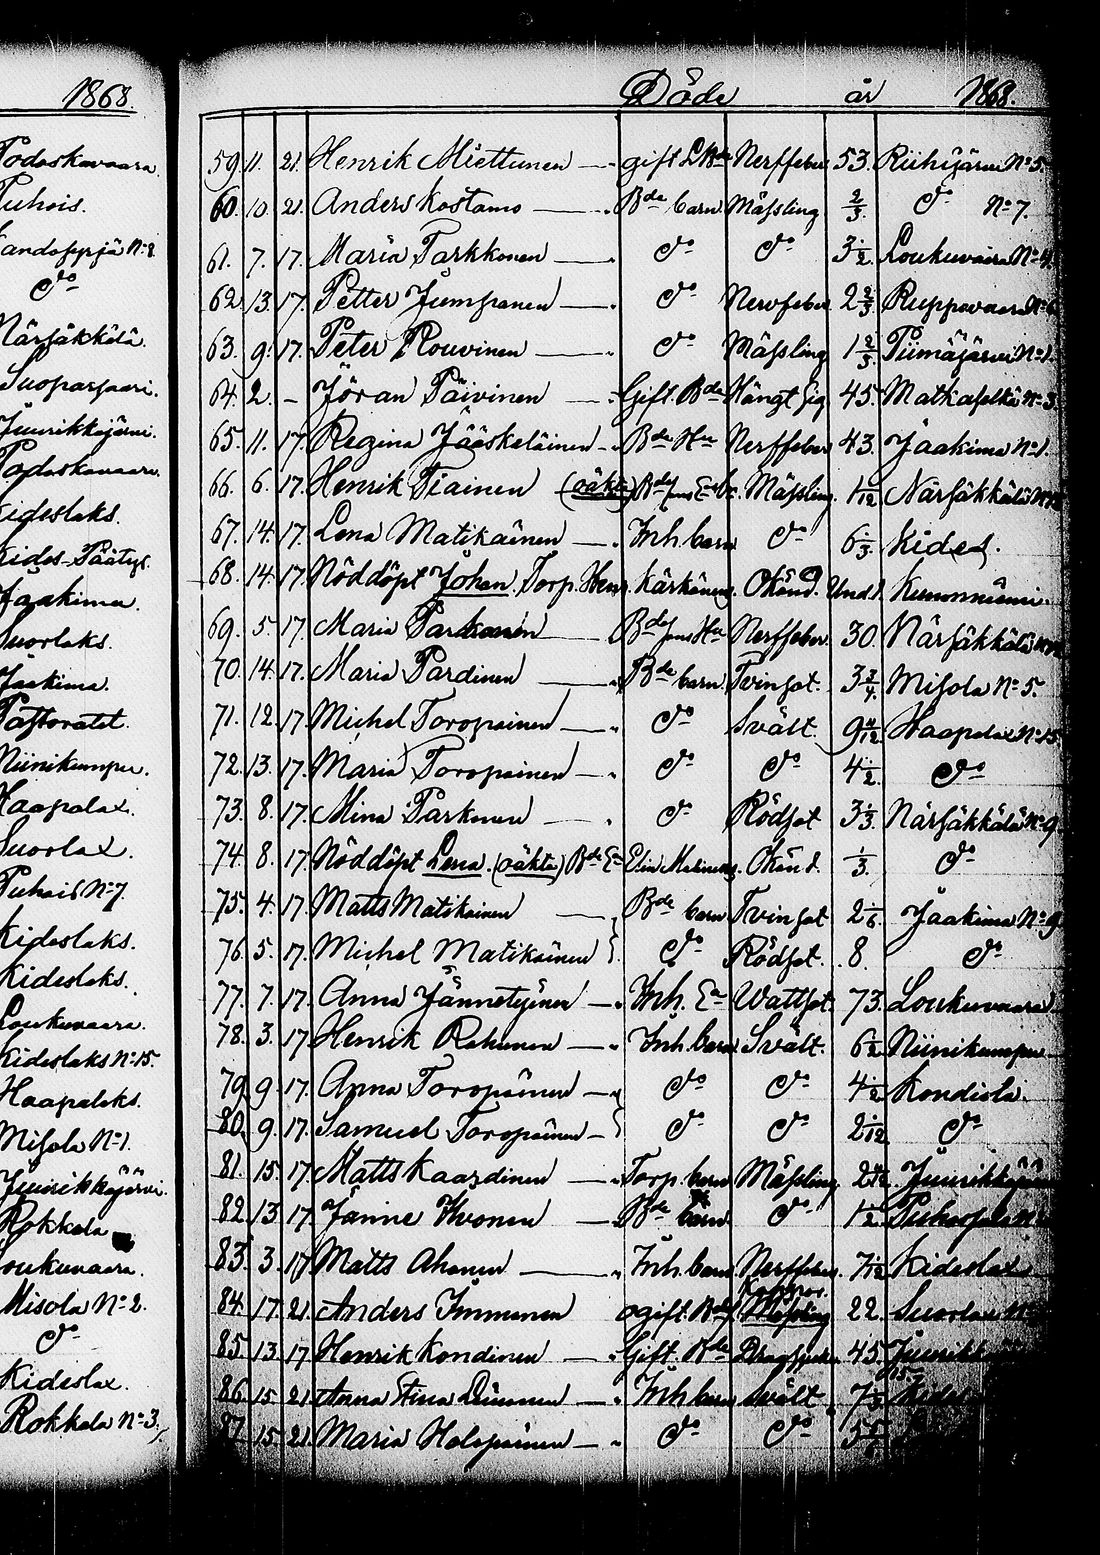 1868.
Puhois.
do
Närsäkkälä.
Suorlaks.
Jaakima.
Pastoratet.
Niinikumpu.
Haapalax.
Suorlax.
Puhois No 7.
Kideslaks.
Kideslaks.
Loukuvaara.
Kideslaks No 15.
Haapalaks.
Misola No 1.
Juurikkajärvi.
Rokkala
Loukuvaara.
Misola No 2.
do
Kideslax.
Rokkala No 3.
Döde år 1868.
59. 11. 21. Henrik Miettunen gift Nerffeber 53. Riihijärvi No 5.
60. 10. 21. Anders Kostamo Bde barn Mässling 2/3 do No 7.
61. 7. 17. Maria Parkkonen do do 3 1/2 Loukuvaara No
62. 13. 17. Petter Jumppanen do Nervfeber 2 2/3 Ruppovaara No 6
63. 9. 17. Peter Rouvinen do Mässling 1 2/3 Piimäjärvi No 1.
64. 2. - Jöran Päivinen Gift. Bde Hängt sig 45. Matkaselkä No 3.
65. 11. 17. Regina Jääskeläinen Bde Hu Nerffeber 43. Jaakima No 1.
66. 6. 17. Henrik Tiainen (oäkta) Mässling 1/12 Närsäkkälä
67. 14. 17. Lena Matikainen Inh. barn do 6 1/3 Kides.
68. 14. 17. Nöddöpt Johan. Torp. Kärkäinens Okänd.
69. 5. 17. Maria Parkonen Nerffeber 30. Närsäkkälä
70. 14. 17. Maria Pardinen Bde barn Tvinsot. 3 3/4 Misola No 5.
71. 12. 17. Michel Toropainen do Svält. Haapalax No 15
72. 13. 17. Maria Toropainen do do 4 1/2 do
73. 8. 17. Mina Parkonen do Rödsot 3 1/3 Närsäkkälä No 9
74. 8. 17. Nöddöpt Lena. (oäkta) Bde Okänd. 1/3. do
75. 4. 17. Matts Matikainen Bde barn Tvinsot 2 1/6 Jaakima No 9
76. 5. 17. Michel Matikainen do Rödsot. 8. do
77. 7. 17. Anna Jännetyinen Inh. Ea Wattsot. 73. Loukuvaara
78. 3. 17. Henrik Rahunen Inh. barn Svält. 6 1/2 Niinikumpu
79. 9. 17. Anna Toropainen do do 4 1/2 Kondiola.
80. 9. 17. Samuel Toropainen do do 2 1/12 do
81. 15. 17. Matts Kaasinen Torp. barn Mässling Juurikkajärvi
82. 13. 17. Janne Ikonen Bde barn do 1 1/2
83. 3. 17. Matts Ahonen Inh. barn Nerffeber 7 1/12 Kideslax
84. 17. 21. Anders Immonen ogift. Mässling 22. Suorlax
85. 13. 17. Henrik Kondinen Gift. Bde 45.
86. 15. 21. Anna Inh barn Svält
87. 15. 21. Maria Holopainen do do